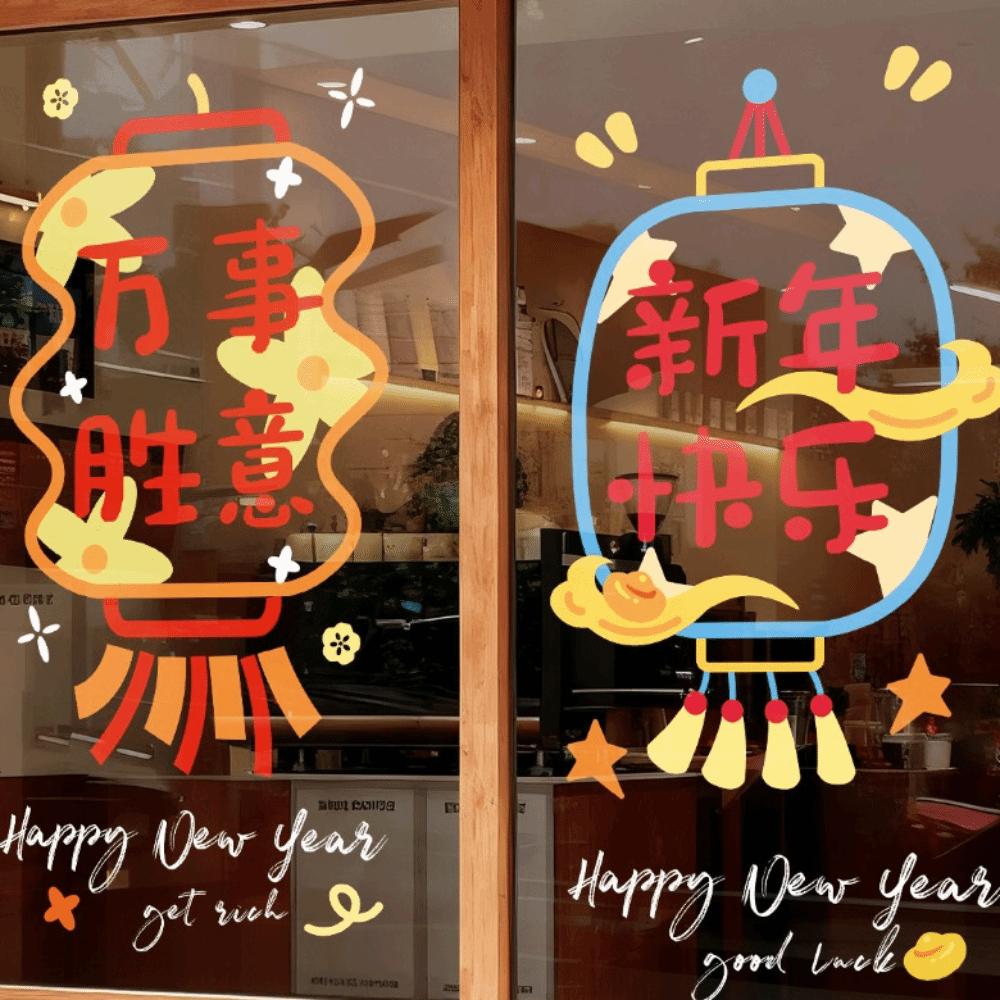 万事
胜意
Happy New Year
get rich
新年
快乐
Happy New Year
good luck